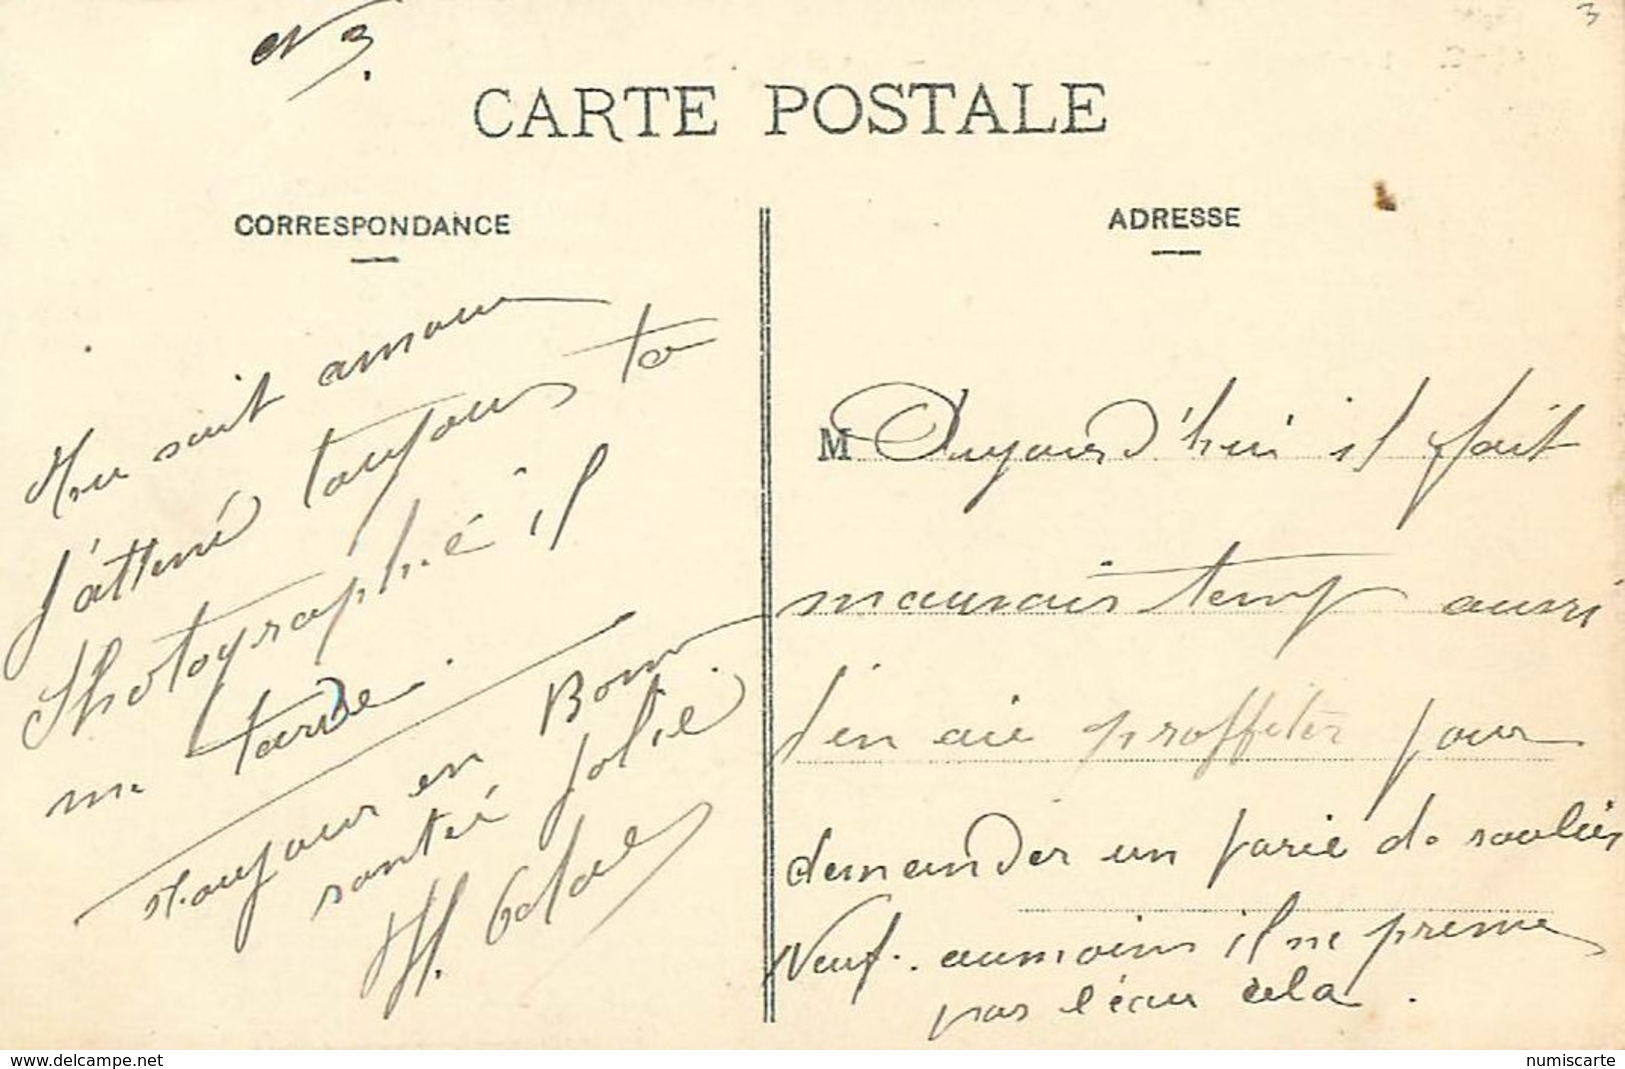 N 3.
3
CARTE POSTALE
CORRESPONDANCE
ADRESSE
sait amour
j'attené toujours ta
Photographié il
me tarde.
Toujour en Bonn
santée jolie.
H.
M Aujourd'hui il fait
mauvais temp aussi
j'en aie proffiter pour
demander un parie de souliers
Neuf. aumoins il ne prenne
pas l'éau cela.
www.delcampe.net
numiscarte